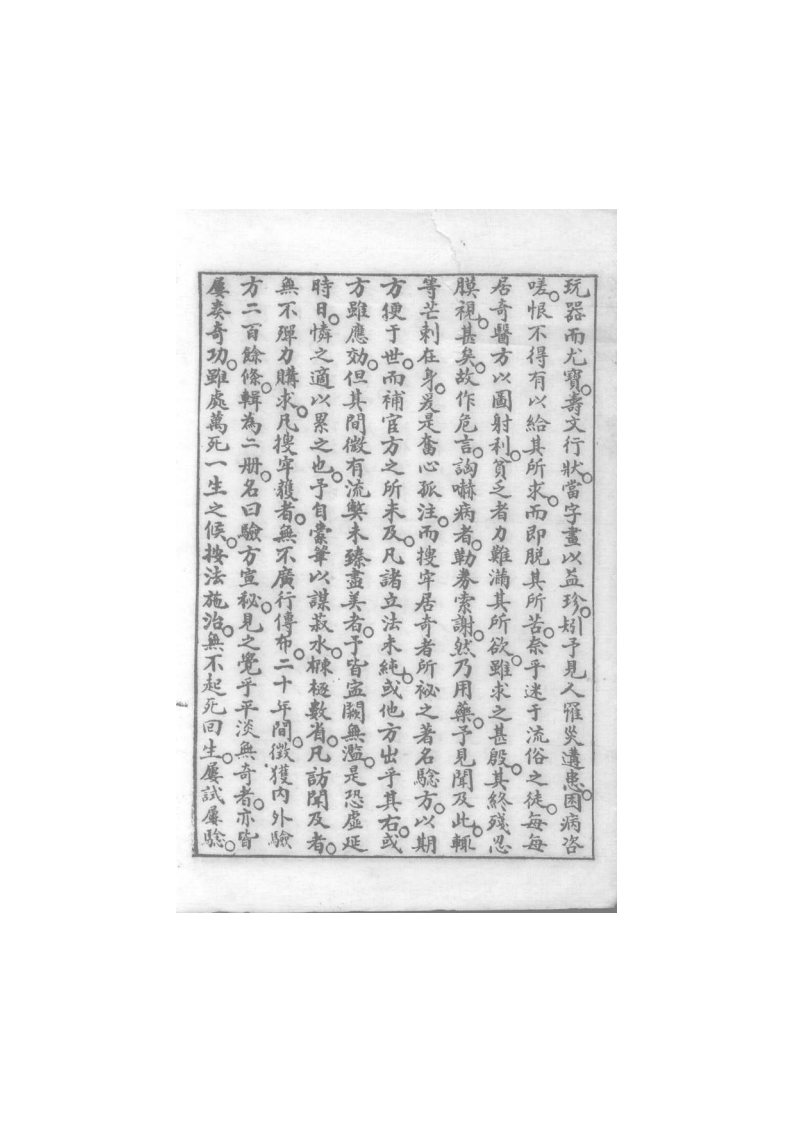 玩器而尤寶。壽文行狀。當字畫以益珍。矧予見人罹災遘患。困病咨
嗟。恨不得有以給其所求。而即脫其所苦。奈乎迷于流俗之徒。每每
居奇醫方以圖射利。貧乏者力難滿其所欲。雖求之甚殷。其終殘忍
膜視。甚矣。故作危言。詾嚇病者。勒劵索謝。然乃用藥。予見聞及此。輒
等芒刺在身。爰是奮心孤注。而搜牢居奇者所祕之著名騐方。以期
方便于世。而補官方之所未及。凡諸立法未純。或他方出乎其右。或
方雖應効。但其間微有流獘未臻盡美者。予皆寍闕無濫。是恐虛延
時日。憐之適以累之也。予自橐筆以謀菽水。棘極數省。凡訪聞及者。
無不殫力購求。凡搜牢獲者。無不廣行傳布。二十年間。徵獲内外驗
方二百餘條。輯為二册。名曰驗方宣秘。見之覺乎平淡無奇者。亦皆
屢奏奇功。雖處萬死一生之候。按法施治。無不起死回生。屢試屢騐。